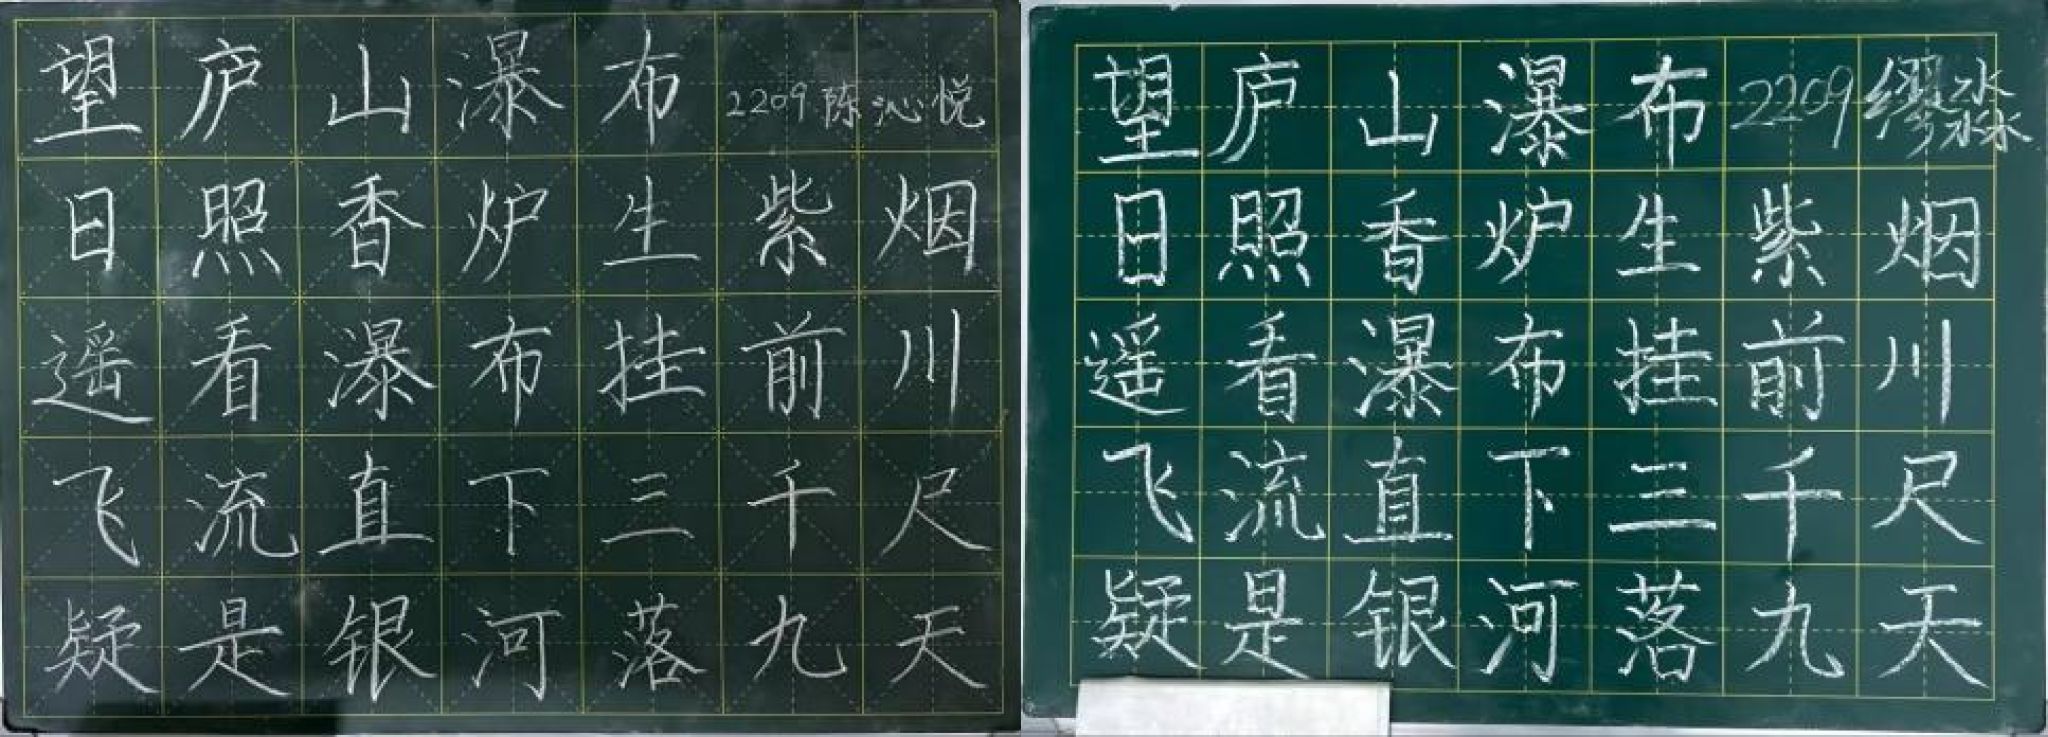 望庐山瀑布 2209 陈沁悦
日照香炉生紫烟
遥看瀑布挂前川
飞流直下三千尺
疑是银河落九天
望庐山瀑布 2209 缪淼
日照香炉生紫烟
遥看瀑布挂前川
飞流直下三千尺
疑是银河落九天